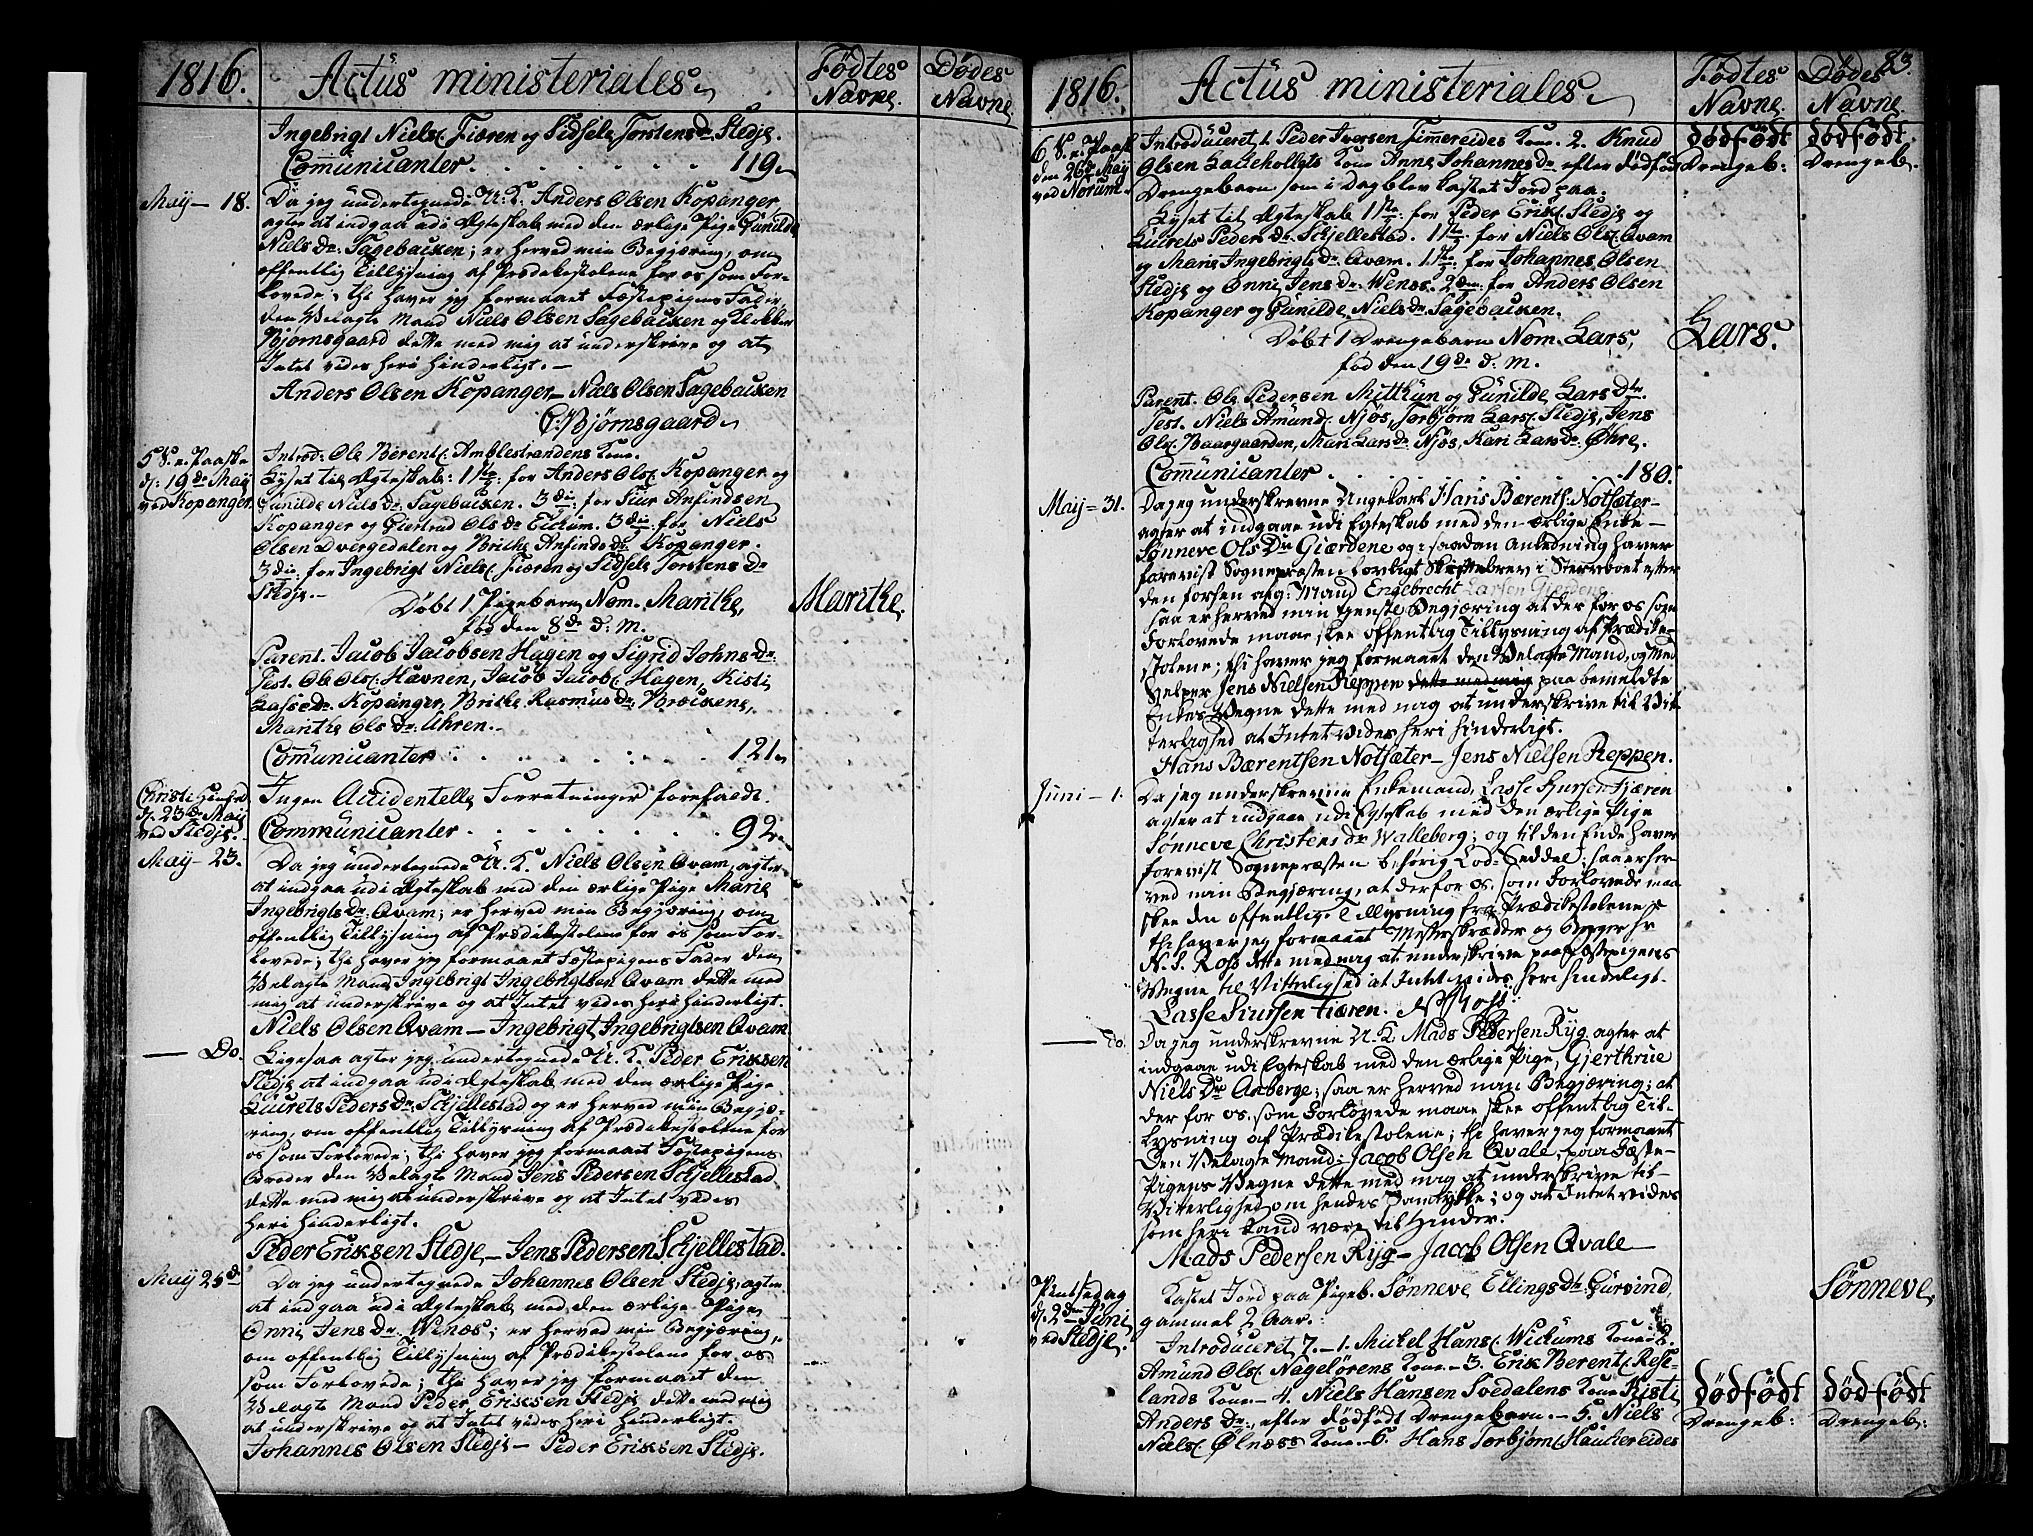 1816. Actus ministeriales. Fødtes Navne. Dødes Navne.
Ingebrigt Niels. Fiæren og Sidsele Torstens Dr. Stedje.
Communicanter . . . . . . . 119.
May - 18. Da jeg undertegnede U. K. Anders Olsen Kopanger
agter at indgaa udi Ægteskab med den ærlige Pige Gunilde
Niels Dr. Sagebakken; er herved min Begjæring, om
offentlig Tillysning af Prædikestolene for os som For-
lovede; thi haver jeg formaaet Fæstepigens Fader,
den Velagte Mand Niels Olsen Sagebakken og Klokker
Bjørnsgaard dette med mig at underskrive og at
Intet vides heri hinderligt.-
Anders Olsen Kopanger - Niels Olsen Sagebakken
C. Bjørnsgaard
5 S. e. Paaske
d. 19de May
ved Kopanger.
Introd: Ole Berents. Amblestrandens Kone.
Lyset til Ægteskab: 1ste for Anders Ols. Kopanger og
Gunilde Niels Dr. Sagebakken. 3die for Siur Anfindsen
Kopanger og Giertrud Ols Dr. Eickum. 3die for Niels
Olsen Dvergedalen og Brithe Anfinds Dr. Kopanger.
3die for Ingebrigt Niels. Fiæren og Sidsele Torstens Dr.
Stedje.-
Døbt 1 Pigebarn, Nom. Marithe, Marithe.
fød den 8de d. M.
Parent. Jacob Jacobsen Hagen og Sigrid Johns Dr.
Test. Ole Ols. Havnen, Jacob Jacobs. Hagen, Kisti
Lasse Dr. Kopanger, Brithe Rasmus Dr.
Marithe Ols Dr. Ahren.
Communicanter . . . . . . 121.
Christi Himfd.
d. 23de May
ved Stedje.
Ingen Accidentelle Forretninger forefaldt.
Communicanter . . . . . . . 92.
May - 23. Da jeg undertegnede U. K. Niels Olsen Qvam, agter
at indgaa udi Ægteskab med den ærlige Pige Marie
Ingebrigts Dr. Qvam; er herved min Begjæring, om
offentlig Tillysning af Prædikestolene for os som For-
lovede; thi haver jeg formaaet Fæstepigens Fader den
Velagte Mand Ingebrigt Ingebrigtsen Qvam dette med
mig at underskrive og at Intet vides heri hinderligt.
Niels Olsen Qvam - Ingebrigt Ingebrigtsen Qvam
— Do. Ligesaa agter jeg undertegnede U. K. Peder Eriksen
Stedje at indgaa udi Ægteskab med den ærlige Pige
Laurets Peders Dr. Schjellestad og er herved min Begjæ-
ring, om offentlig Tillysning af Prædikestolene for
os som Forlovede; thi haver jeg formaaet Fæstepigens
Broder den Velagte Mand Jens Pedersen Schjellestad
dette med mig at underskrive og at Intet vides
heri hinderligt.
Peder Eriksen Stedje - Jens Pedersen Schjellestad.
May 25de Da jeg undertegnede Johannes Olsen Stedje, agter
at indgaa udi Ægteskab med den ærlige Pige
Onni Jens Dr. Wenæs; er herved min Begjæring,
om offentlig Tillysning af Prædikestolene for os
som Forlovede; thi haver jeg formaaet den
Velagte Mand Peder Eriksen Stedje dette med mig
at underskrive og at Intet vides heri hinderligt.
Johannes Olsen Stedje - Peder Eriksen Stedje.
1816. Actus ministeriales. Fødtes Navne. Dødes Navne. 83.
6 S. e. Paask
den 26de May
ved Norum.
Introduceret 1. Peder Iversen Timmereides Kone. 2. Knud
Olsen Kone Anne Johannes Dr. efter dødfød
Drengebarn som i Dag blev kastet Jord paa.
dødfødt Drengeb: dødfødt Drengeb.
Lyset til Ægteskab 1ste for Peder Eriks. Stedje og
Laurets Peders Dr. Schjellestad. 1ste for Niels Ols. Qvam
og Marie Ingebrigts Dr. Qvam. 1ste for Johannes Olsen
Stedje og Onni Jens Dr. Wenæs. 2den for Anders Olsen
Kopanger og Gunilde Niels Dr. Sagebakken.
Døbt 1 Drengebarn Nom. Lars, Lars.
fød den 19de d. M.
Parent. Ole Pedersen Mitthun og Gunilde Lars Dtr.
Test. Niels Amunds. Njøs, Torbjørn Lars. Stedje, Jens
Ols. Baargaarden, Mari Lars Dr. Njøs, Kari Lars Dr. Øhre.
Communicanter . . . . . . . 180.
May = 31. Da jeg underskrevne Ungekarl Hans Bærents. Notsæter
agter at indgaae udi Egteskab med den ærlige Enke-
Sønneve Ols Dtr Giærdene og i saadan Anledning haver
forevist Sognepræsten lovligt Skiftebrev i Stervboet efter
den forsen afg: Mand Engebrecht Larsen Gjerdene
saa er herved min tjenste Begjæring at der for os som
Forlovede maae skee offentlig Tillysning af Prædike-
stolene; thi haver jeg formaaet den Velagte Mand, og Med
Helper Jens Nielsen Reppen dette med mig paa bemeldte
Enkes Vegne dette med mag at underskrive til Vit-
terlighed at Intet vides heri hinderligt.
Hans Bærentsen Notsæter - Jens Nielsen Reppen.
Juni - 1. Da jeg underskrevne Enkemand, Lasse Siursen Fiæren
agter at indgaae udi Egteskab med den ærlige Pige
Sønneve Christens Dr Walleberg; og til den Ende haver
forevist Sognepræsten behørig Lod-Seddel; saa er her
ved min Begjæring, at der for os. som Forlovede maa
skee den offentlige Tillysning fra Prædikestolene;
thi haver jeg formaaet Mester Skrædder og Borger Hr
N. S. Ross dette med mag at underskrive paa Fæstepigens
Vegne til Vitterlighed at Intet vides heri hinderligt.
Lasse Siursen Fiæren. N S Ross
— Do. Da jeg underskrevne U. K. Mads Pedersen Ryg agter at
indgaae udi Egteskab med den ærlige Pige, Gjerthrue
Niels Dtr Aaberge; saa er herved min Begjæring; at
der for os. som Forlovede maae skee offentlig Til-
lysning af Prædikestolene; thi haver jeg formaaet
Den Velagte Mand: Jacob Olsen Qvale, paa Fæste-
Pigens Vegne dette med mag at underskrive til-
Vitterlighed om hendes Samtykke; og at Intet vides
som heri kand være til Hinder.
Mads Pedersen Ryg - Jacob Olsen Qvale
Pintsedag
d. 2den Juni
ved Stedje.
Kastet Jord paa Pigeb. Sønneve Ellings Dtr. Gurvind, Sønneve,
gammel 2 Aar.
Introduceret 7. - 1. Mickel Hans. Wickums Kone. 2.
Amund Ols. Nagelørens Kone - 3. Erik Berents. Rese-
lands Kone - 4. Niels Hansen Soedalens Kone Kisti
Anders Dr. efter dødfødt Drengebarn. - 5. Niels
Niels. Ølnæss Kone. - 6. Hans Torbjørns. Hauchereides
dødfødt Drengeb: dødfødt Drengeb: